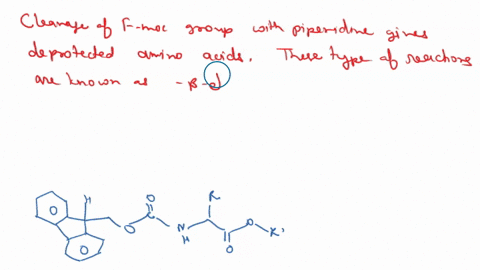 Cleavage of F-moc group with piperidine gives
deprotected amino acids. These type of reactions
are known as -β-el
H
O
O
O
O
N
H
R
O
O
R'